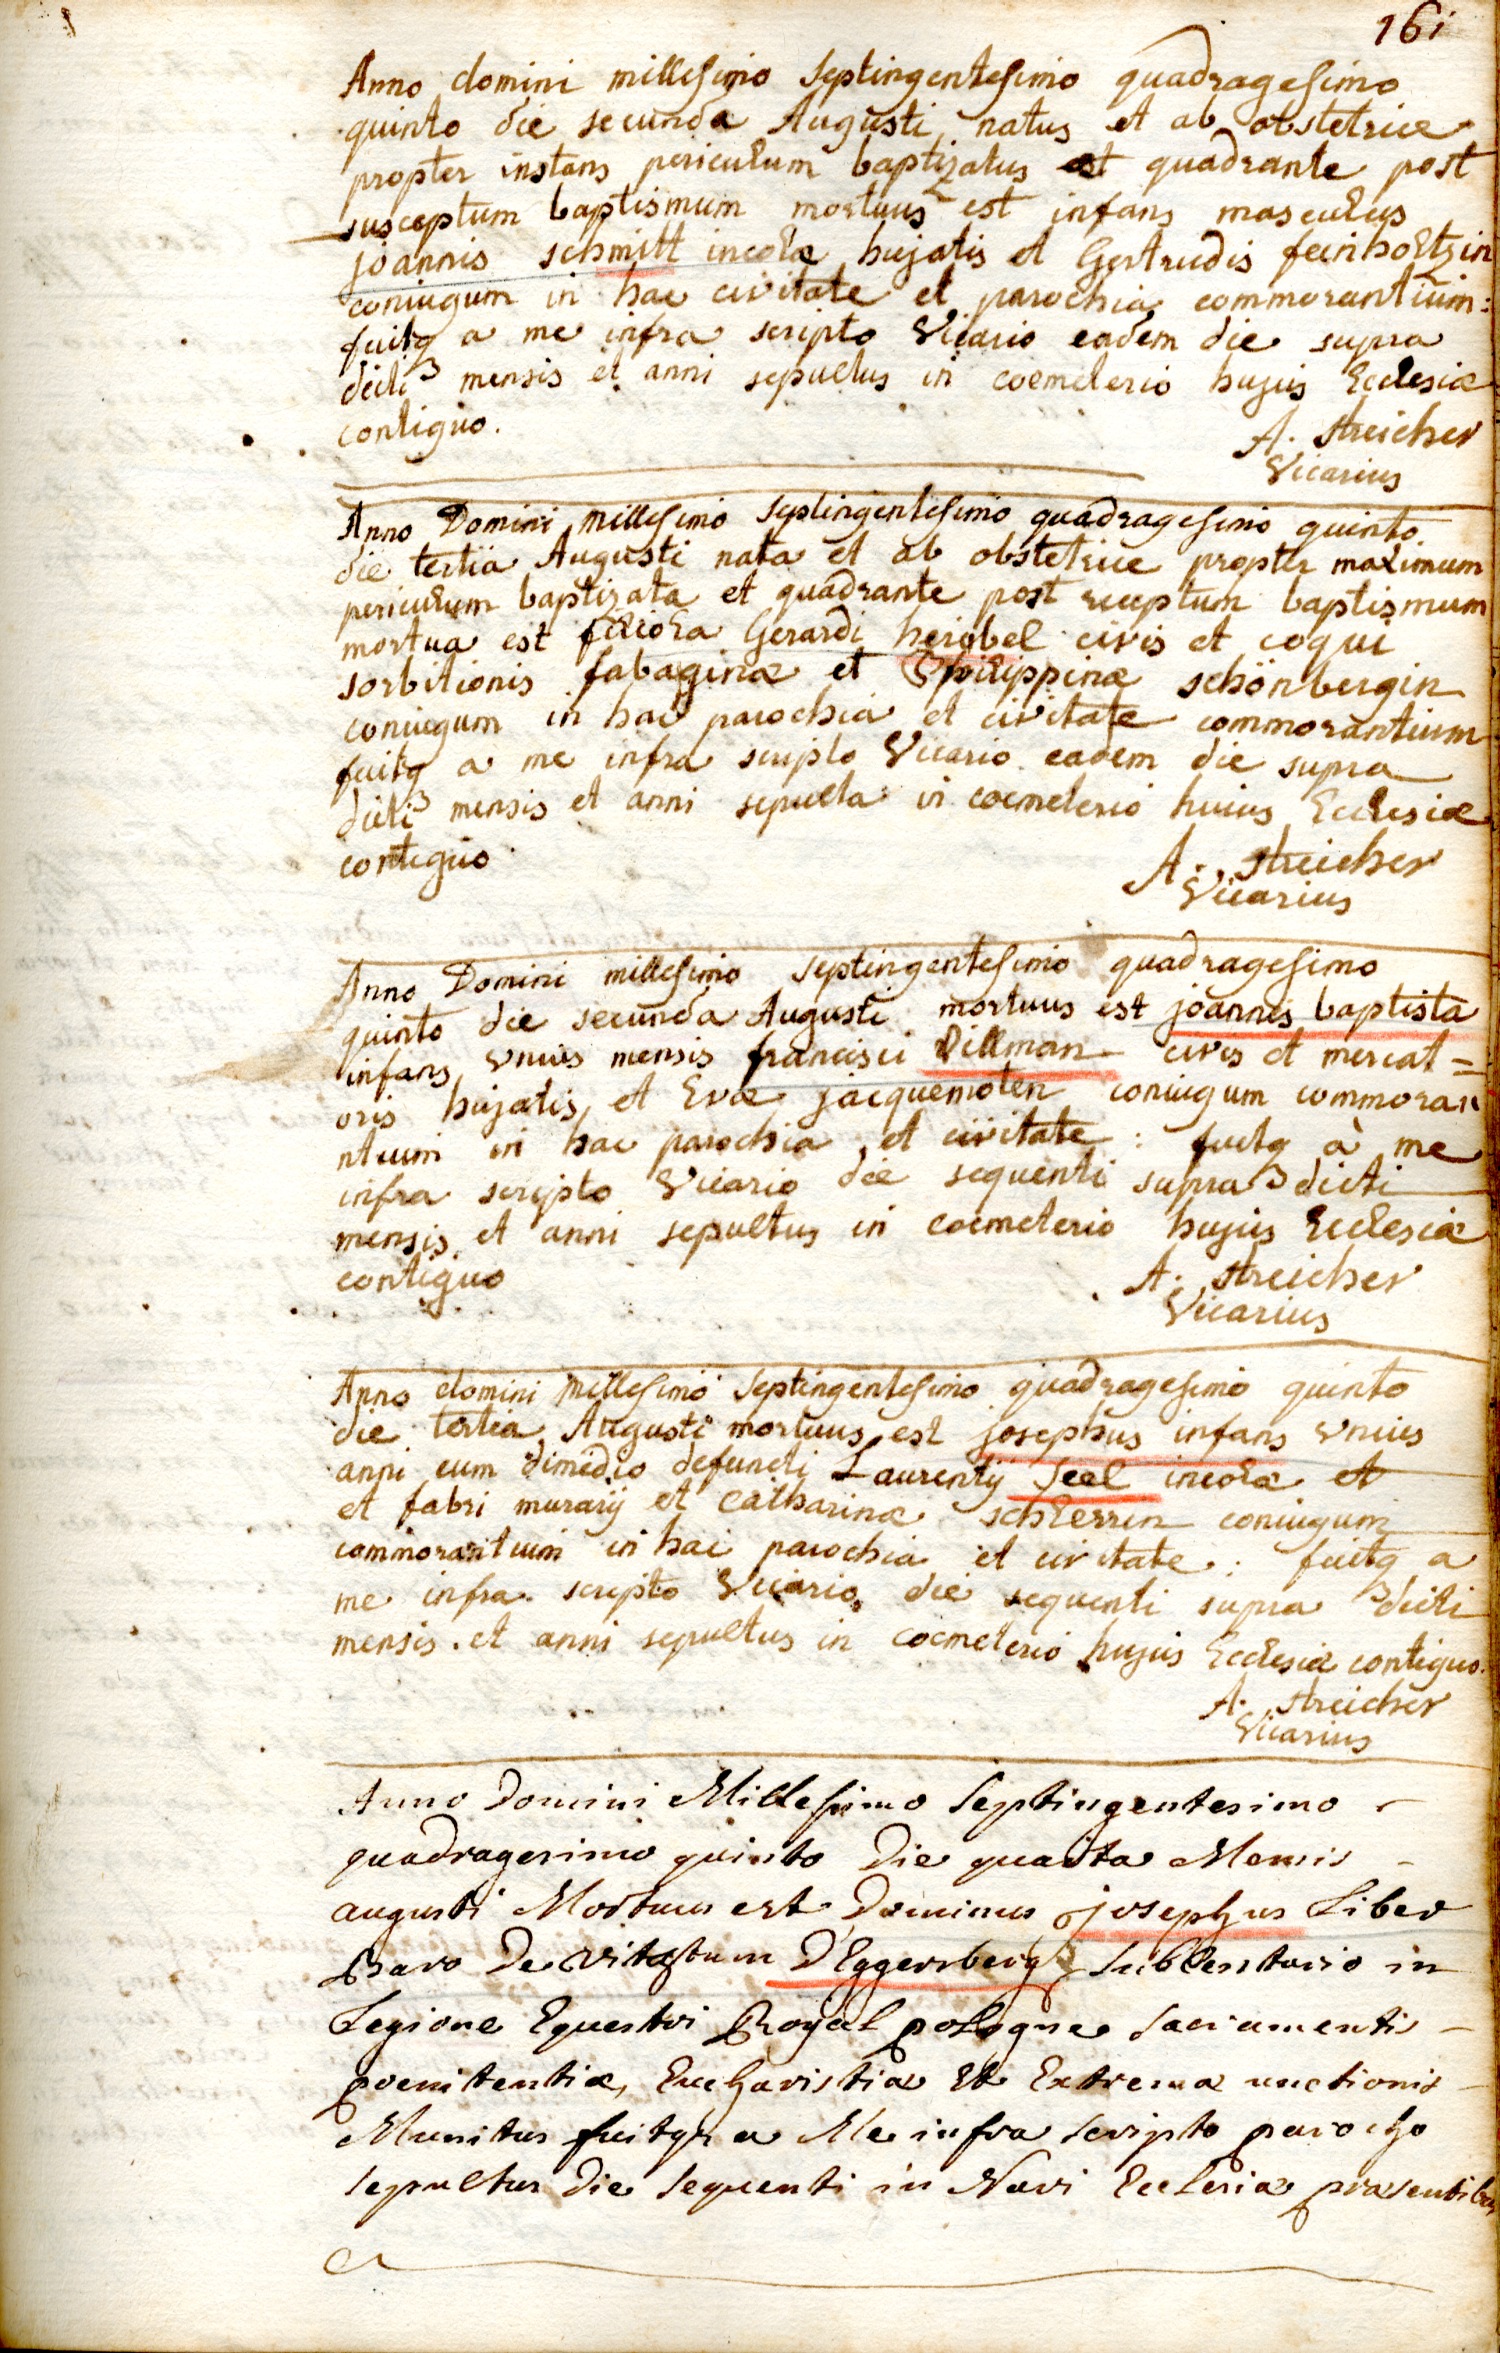 161
Anno domini millesimo septingentesimo quadragesimo
quinto die secunda Augusti natus et ab obstetrice
propter instans periculum baptizatus est quadrante post
susceptum baptismum mortuus est infans masculus
joannis schmitt incolæ hujatis et Gertrudis feinholtzin
coniugum in hac civitate et parochia commorantium:
fuitq a me infra scripto Vicario eadem die supra
dicti mensis et anni sepultus in coemeterio hujus Ecclesiæ
contiguo.
A. Streicher
Vicarius
Anno Domini millesimo septingentesimo quadragesimo quinto
die tertia Augusti nata et ab obstetrice propter maximum
periculum baptizata et quadrante post receptum baptismum
mortua est filiola Gerardi herobel civis et coqui
sorbitionis fabaginæ et Philippinæ schönbergin
coniugum in hac parochia et civitate commorantium
fuitq a me infra scripto Vicario eadem die supra
dicti mensis et anni sepulta in coemeterio huius Ecclesiæ
contiguo
A. Streicher
Vicarius
Anno Domini millesimo septingentesimo quadragesimo
quinto die secunda Augusti mortuus est joannes baptista
infans unius mensis francisci Dillman civis et mercat=
oris hujatis, et Evæ jacquemoten coniugum commoran
ntium in hac parochia et civitate: fuitq à me
infra scripto Vicario die sequenti supra dicti
mensis et anni sepultus in coemeterio hujus Ecclesiæ
contiguo
A. Streicher
Vicarius
Anno domini millesimo septingentesimo quadragesimo quinto
die tertia Augusti mortuus est josephus infans unius
anni cum dimidio defuncti Laurentij Seel incolæ et
et fabri murarij et Catharinæ schlerrin coniugum
commorantium in hac parochia et civitate: fuitq a
me infra scripto Vicario die sequenti supra dicti
mensis et anni sepultus in coemeterio hujus Ecclesiæ contiguo.
A. Streicher
Vicarius
Anno Domini Millesimo Septingentesimo
quadragesimo quinto Die quarta Mensis
augusti Mortuus est Dominus josephus Liber
Baro De Vitztum D'Eggersberg Sublentario in
Legione Equestri Royal pologne Sacramentis
poenitentiæ, Eucharistiæ Et Extremæ unctionis
Munitus fuitqz a Me infra scripto parocho
sepultus Die sequenti in Navi Ecclesiæ præsentibus